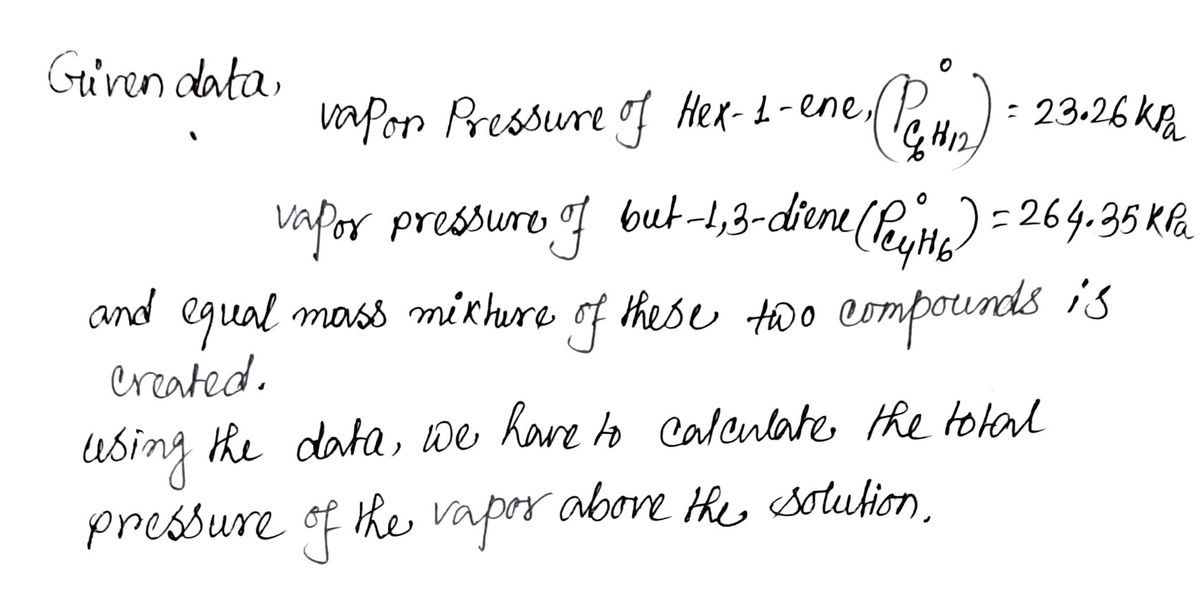 Given data,
vapor Pressure of Hex-1-ene, (P°C6H12) = 23.26 kPa
vapor pressure of but-1,3-diene (P°C4H6) = 264.35 kPa
and equal mass mixture of these two compounds is
created.
using the data, we have to calculate the total
pressure of the vapor above the solution.